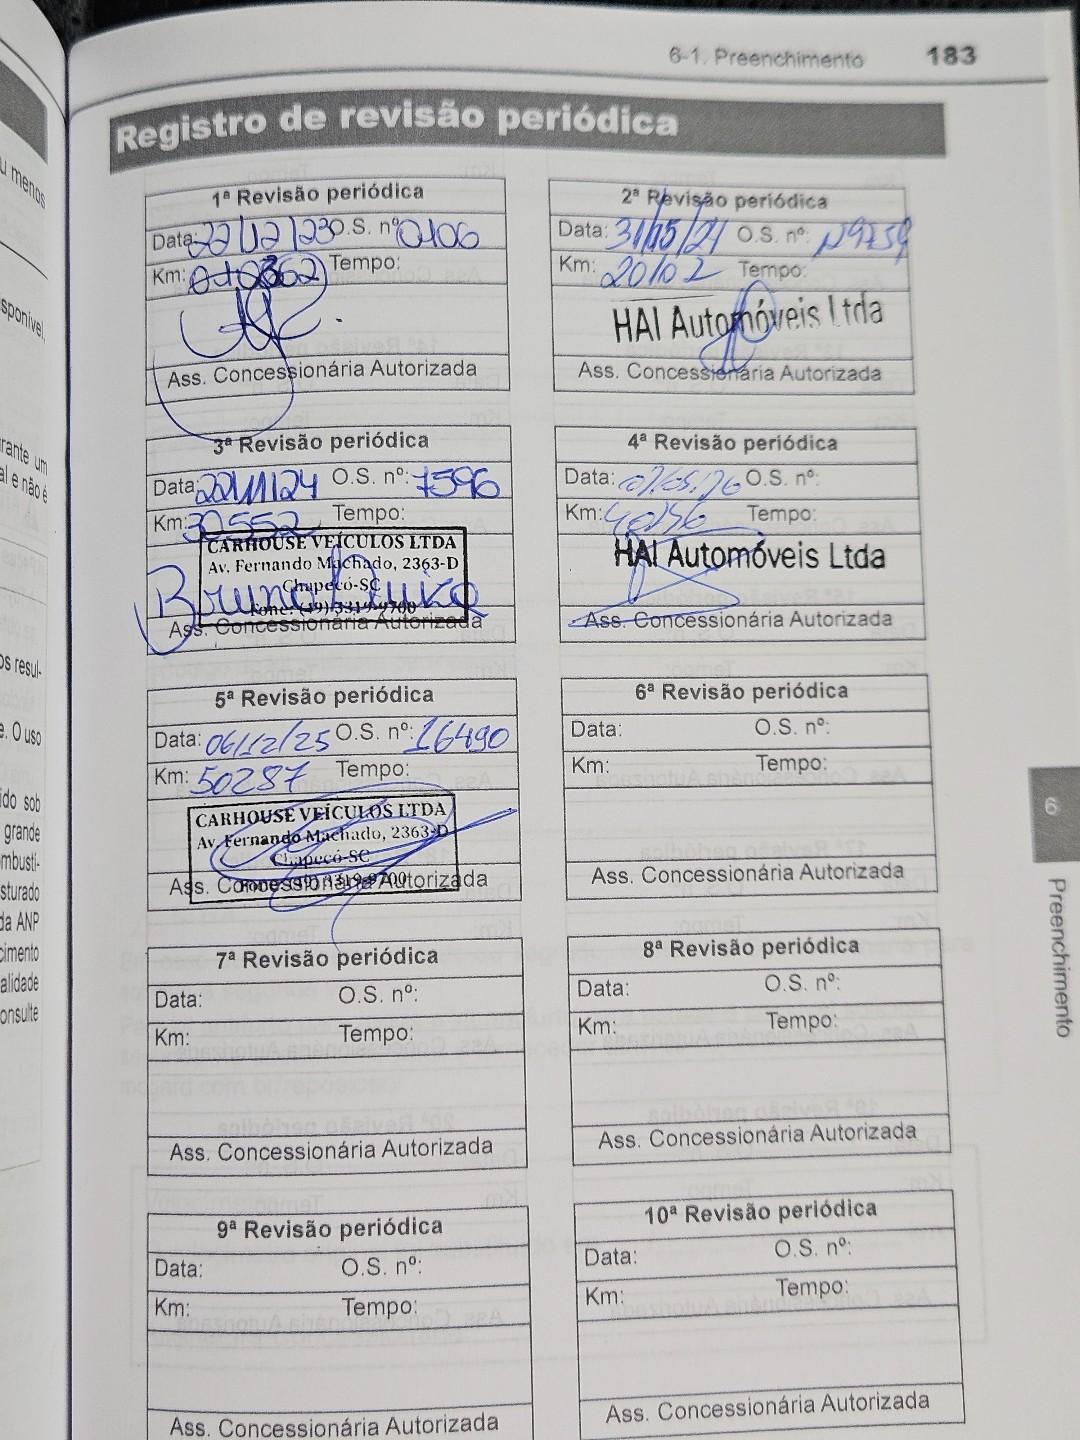 6-1. Preenchimento 183
Registro de revisão periódica
1ª Revisão periódica
Data: 22/12/23 O.S. nº 0106
Km: Tempo:
Ass. Concessionária Autorizada
2ª Revisão periódica
Data: 31/05/24 O.S. nº:
Km: 20102 Tempo:
HAI Automóveis Ltda
Ass. Concessionária Autorizada
3ª Revisão periódica
Data: 22/11/24 O.S. nº: 7596
Km: 30552 Tempo:
CARHOUSE VEÍCULOS LTDA
Av. Fernando Machado, 2363-D
Chapecó-SC
Fone: (49) 3319-9700
Ass. Concessionária Autorizada
4ª Revisão periódica
Data: O.S. nº:
Km: Tempo:
HAI Automóveis Ltda
Ass. Concessionária Autorizada
5ª Revisão periódica
Data: 06/12/25 O.S. nº: 16490
Km: 50287 Tempo:
CARHOUSE VEÍCULOS LTDA
Av. Fernando Machado, 2363-D
Chapecó-SC
Fone: (49) 3319-9700
Ass. Concessionária Autorizada
6ª Revisão periódica
Data: O.S. nº:
Km: Tempo:
Ass. Concessionária Autorizada
7ª Revisão periódica
Data: O.S. nº:
Km: Tempo:
Ass. Concessionária Autorizada
8ª Revisão periódica
Data: O.S. nº:
Km: Tempo:
Ass. Concessionária Autorizada
9ª Revisão periódica
Data: O.S. nº:
Km: Tempo:
Ass. Concessionária Autorizada
10ª Revisão periódica
Data: O.S. nº:
Km: Tempo:
Ass. Concessionária Autorizada
6
Preenchimento